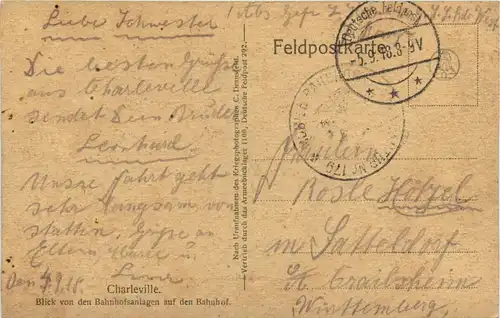 Liebe Schwester
Die besten Grüße
aus Charleville
sendet Dein Bruder
Leonhard.
Unsre Fahrt geht
sehr langsam von
statten, Grüße an
Eltern u.
Den 4.9.18.
Charleville.
Blick von den Bahnhofsanlagen auf den Bahnhof.
Nach Uraufnahmen des Kriegsphotographen C.
Vertrieb durch das Armeebüchlager (100, Deutsche Feldpost 292.
Feldpostkarte
Deutsche Feldpost
-5.9.18.8-9V
* * *
Nr 179
Fräulein
Rosle Hetzel
in Satteldorf
Crailsheim
Württemberg,